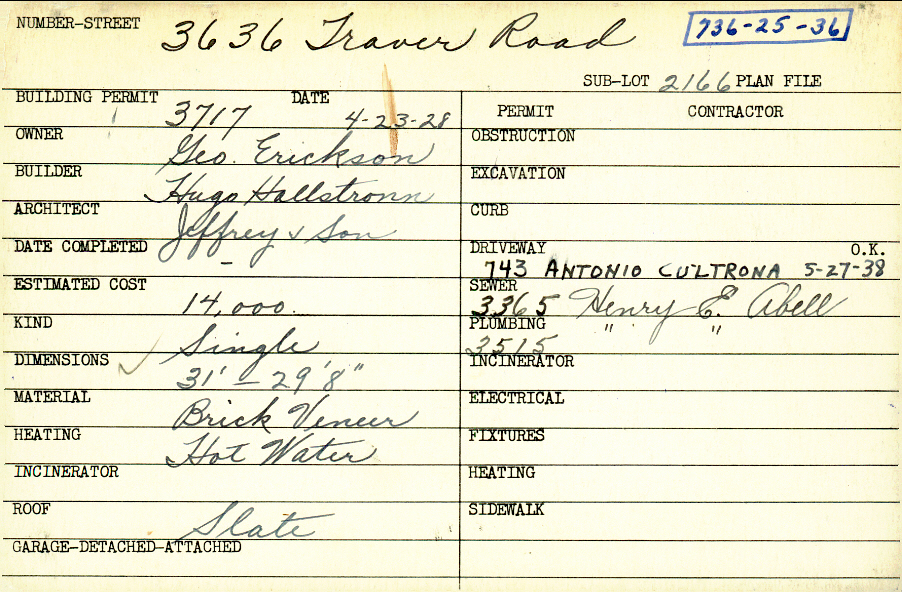 NUMBER-STREET 3636 Traver Road 736-25-36
SUB-LOT 2166 PLAN FILE
BUILDING PERMIT 3717 DATE 4-23-28
PERMIT CONTRACTOR
OWNER Geo. Erickson
OBSTRUCTION
BUILDER Hugo Hallstronn
EXCAVATION
ARCHITECT Jeffrey & Son
CURB
DATE COMPLETED -
DRIVEWAY O.K.
743 ANTONIO CULTRONA 5-27-38
ESTIMATED COST 14,000.
SEWER 3365 Henry E. Abell
KIND Single
PLUMBING 3515 " "
DIMENSIONS ✓ 31' - 29'8"
INCINERATOR
MATERIAL Brick Veneer
ELECTRICAL
HEATING Hot Water
FIXTURES
INCINERATOR
HEATING
ROOF Slate
SIDEWALK
GARAGE-DETACHED-ATTACHED